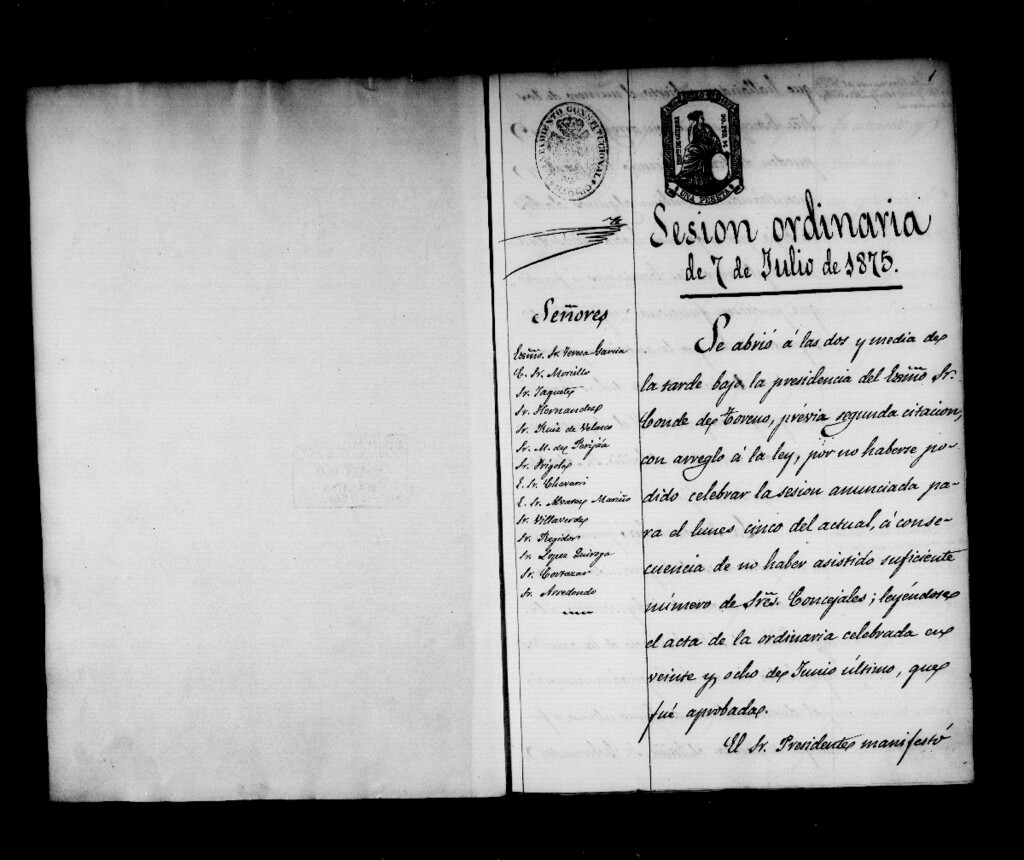 1
AYUNTAMIENTO CONSTITUCIONAL
UNA PESETA
Sesion ordinaria
de 7 de Julio de 1875.
Señores
Exmõ. Sr. Teresa Garcia
E. Sr. Morillo
Sr. Jaquete
Sr. Hernandez
Sr. Ruiz de Velasco
Sr. M. de Perijáa
Sr. Frigola
E. Sr. Chavarri
E. Sr. Alvarez Mariño
Sr. Villaverde
Sr. Regidor
Sr. Lopez Quiroga
Sr. Cortazar
Sr. Arredondo
Se abrió á las dos y media de
la tarde bajo la presidencia del Exmõ Sr.
Conde de Toreno, prévia segunda citacion,
con arreglo á la ley, por no haberse po-
dido celebrar la sesion anunciada pa-
ra el lunes cinco del actual, á conse-
cuencia de no haber asistido suficiente
número de Sres. Concejales; leyéndose
el acta de la ordinaria celebrada en
veinte y ocho de Junio último, que
fué aprobada.
El Sr. Presidente manifestó